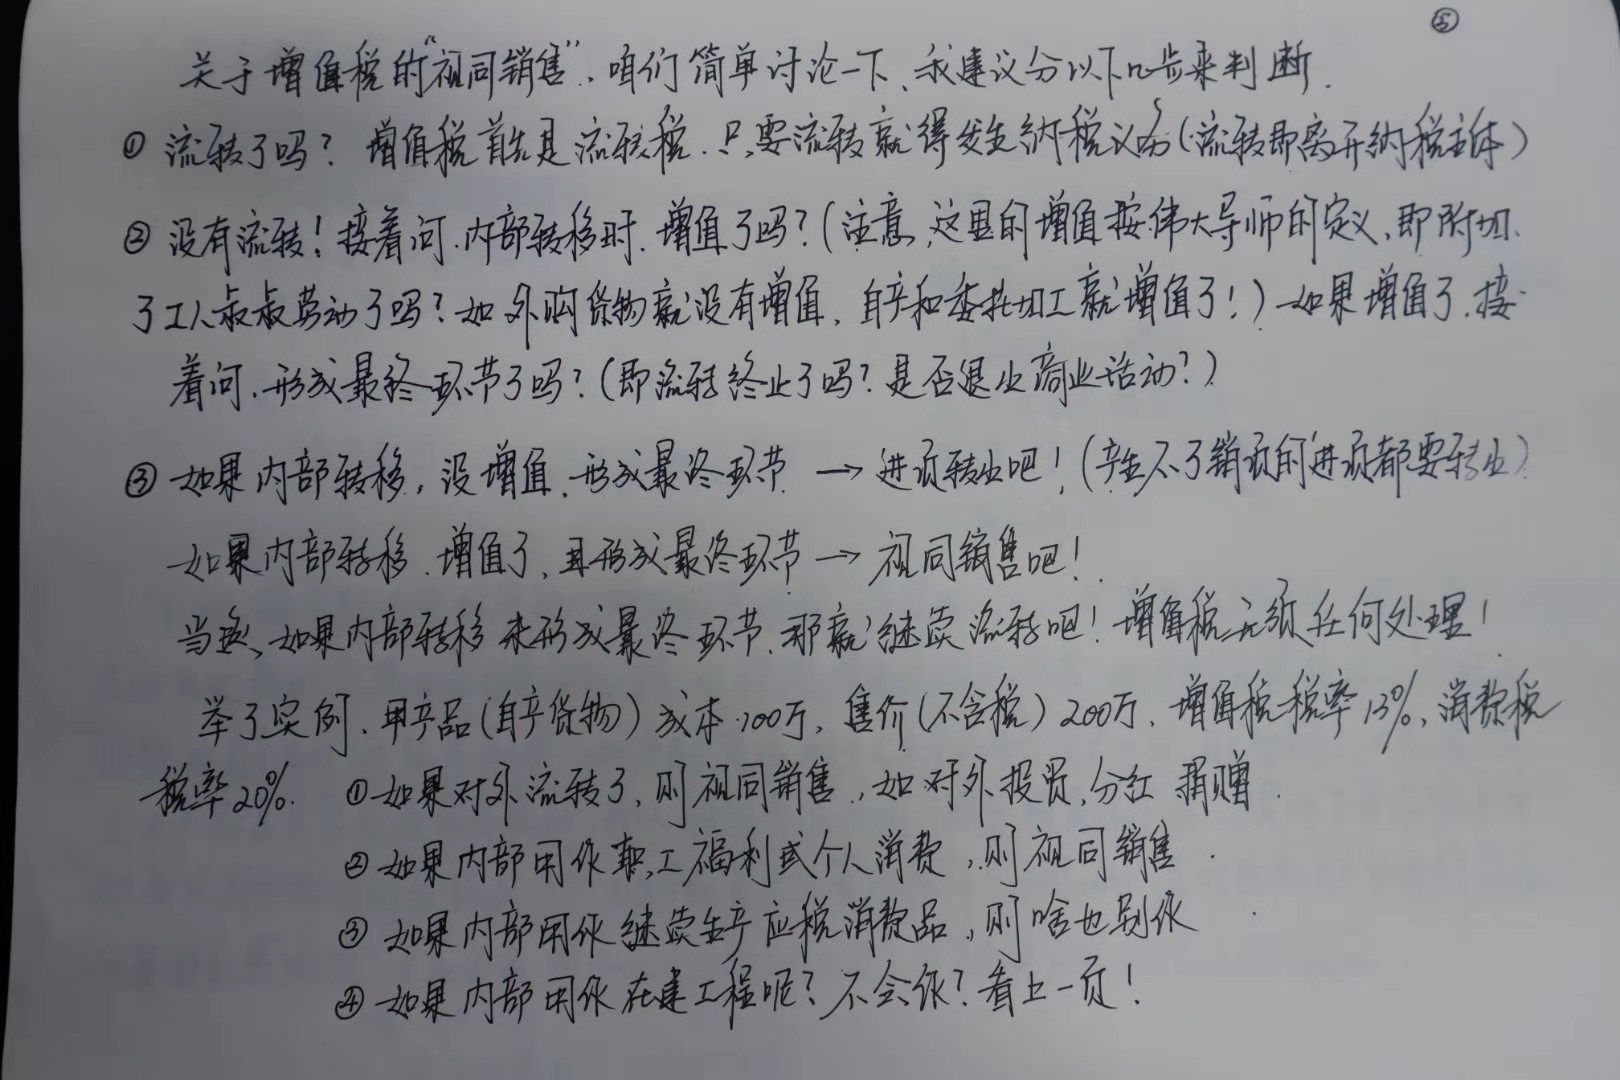 ⑤
关于增值税的“视同销售”、咱们简单讨论一下、我建议分以下几步来判断.
① 流转了吗？增值税首先是流转税.只要流转就得发生纳税义务(流转即离开纳税主体)
② 没有流转！接着问.内部转移时.增值了吗？(注意,这里的增值按伟大导师的定义,即附加
了工人叔叔劳动了吗？如外购货物就没有增值,自产和委托加工就增值了！)如果增值了.接
着问.形成最终环节了吗？(即流转终止了吗？是否退出商业活动？)
③ 如果内部转移,没增值.形成最终环节 → 进项转出吧！(产生不了销项的进项都要转出)
如果内部转移.增值了、且形成最终环节 → 视同销售吧！
当然、如果内部转移未形成最终环节.那就继续流转吧！增值税无须任何处理！
举个实例.甲产品(自产货物)成本100万,售价(不含税)200万.增值税税率13%,消费税
税率20%. ①如果对外流转了,则视同销售,如对外投资,分红 捐赠.
②如果内部用作职工福利或个人消费,则视同销售.
③如果内部用作继续生产应税消费品,则啥也别做
④如果内部用作在建工程呢？不会做？看上一页！